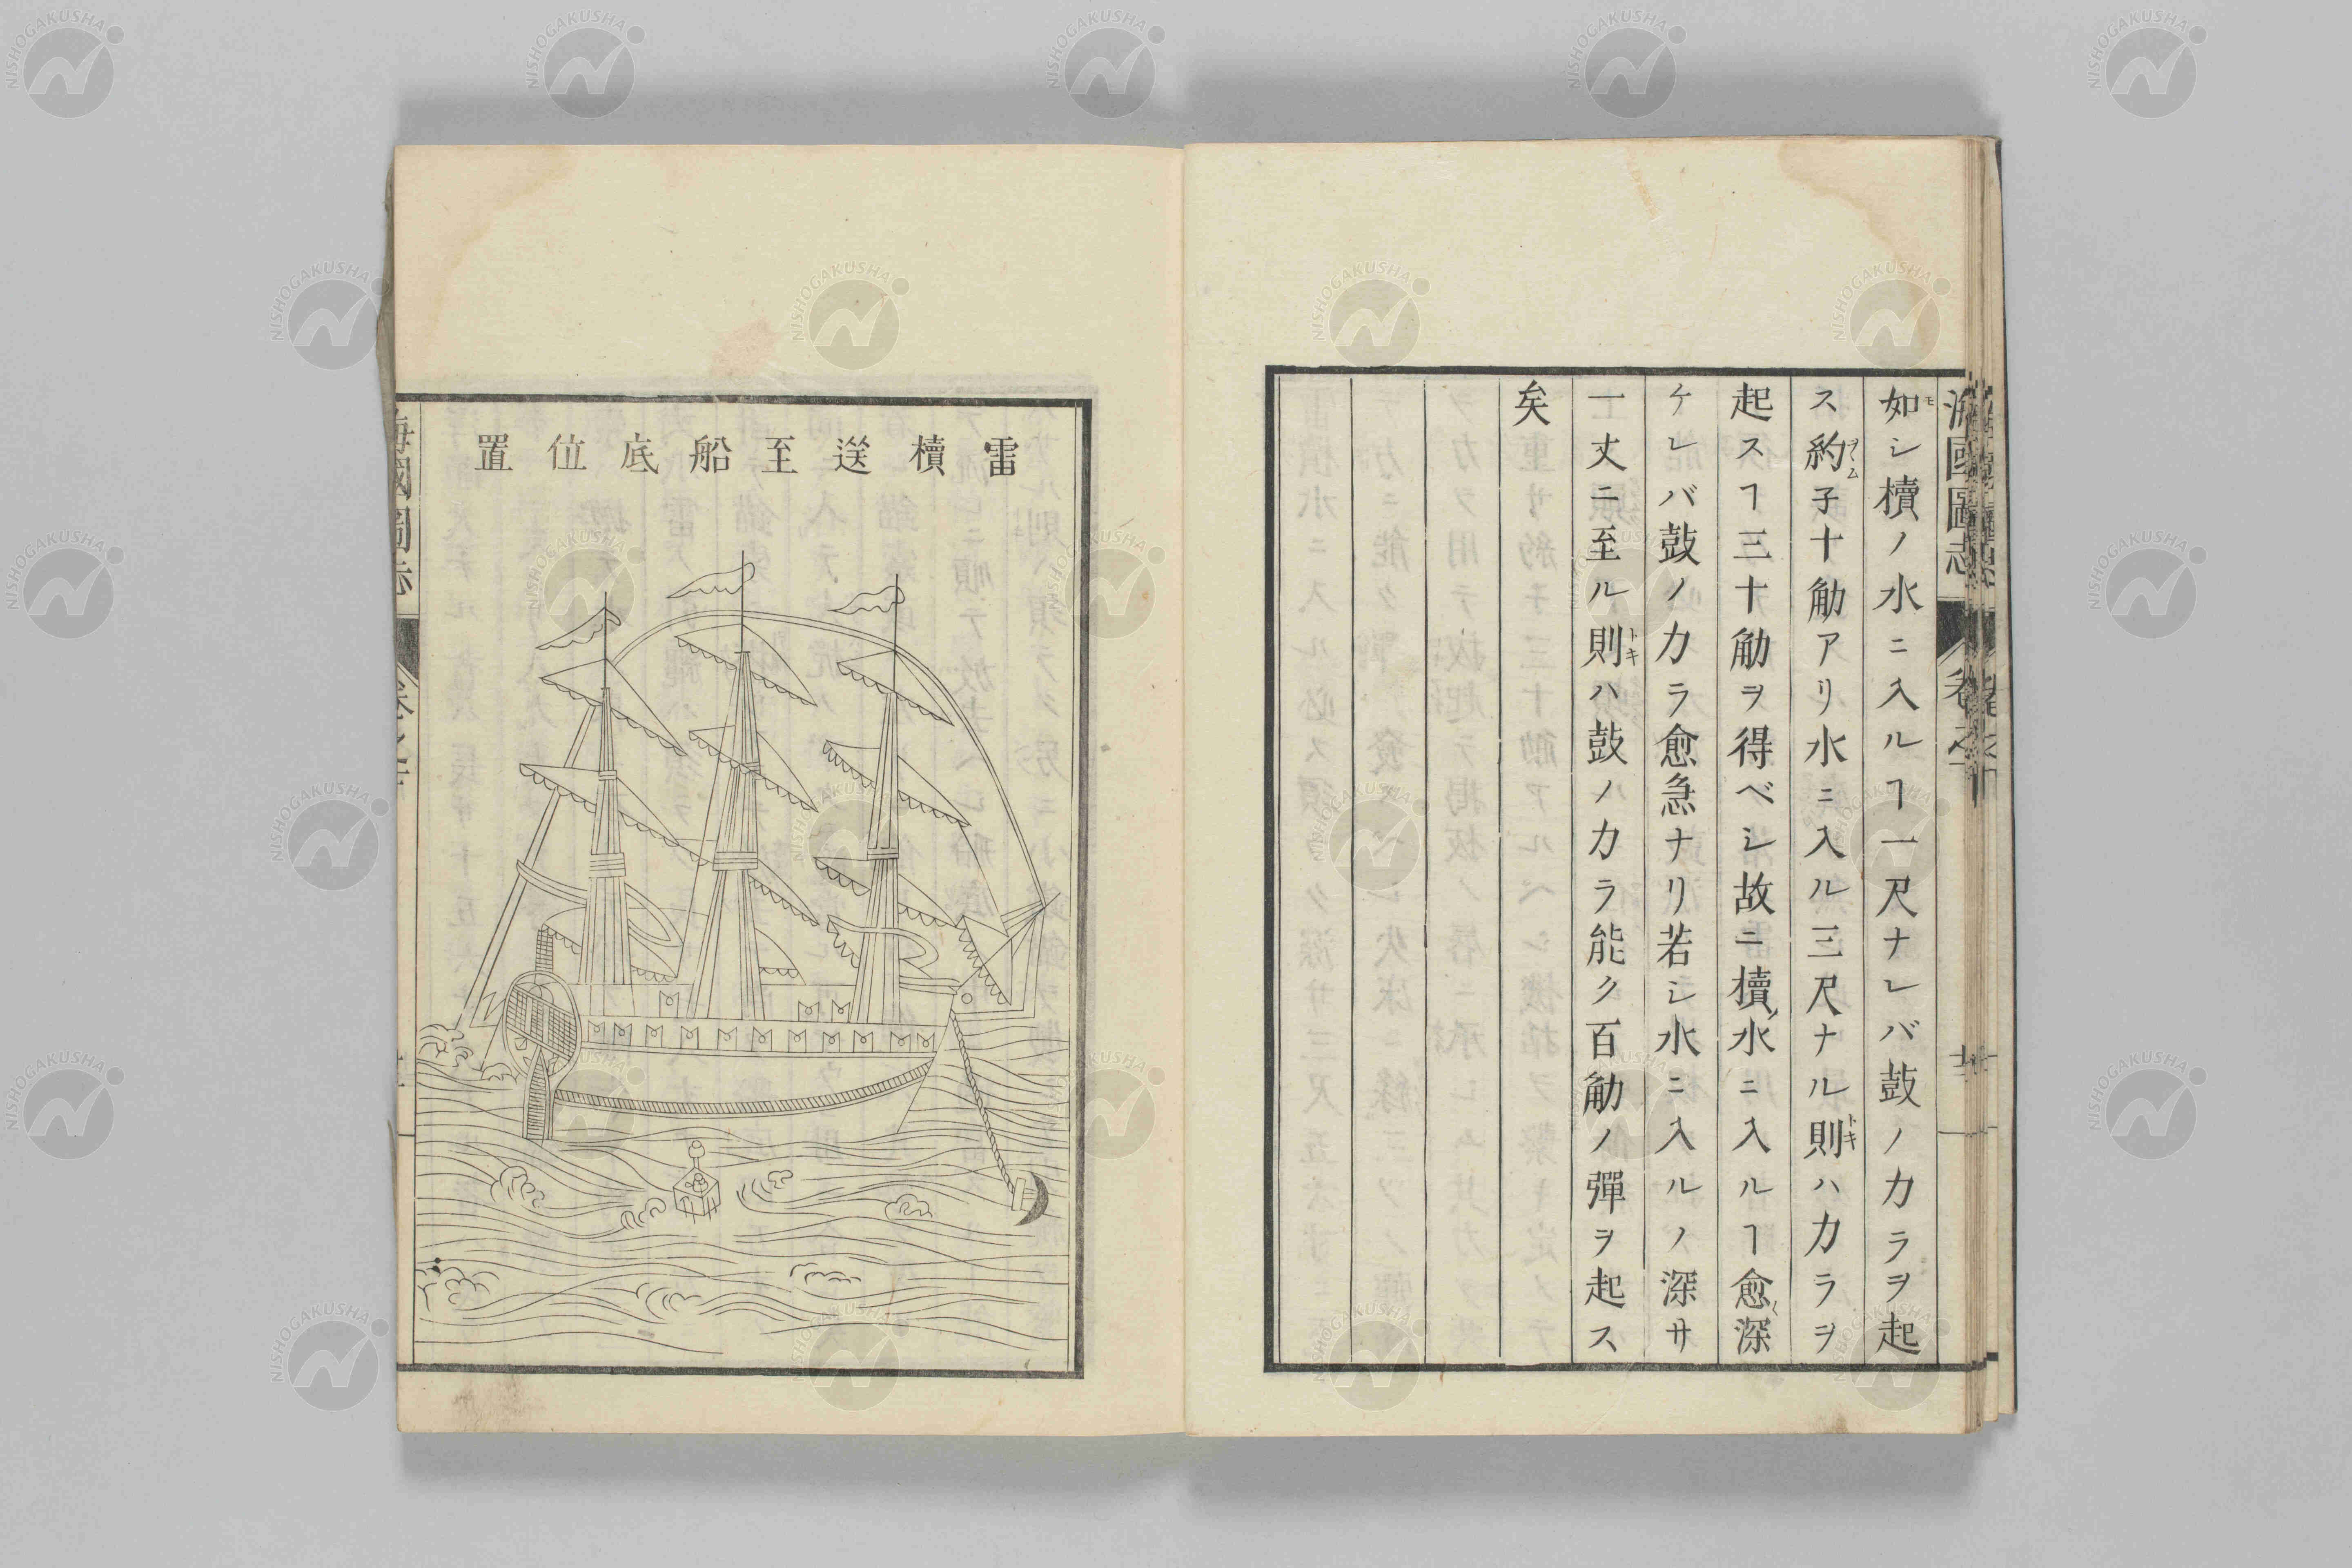 如シ櫝ノ水ニ入ルヿ一尺ナレバ鼓ノ力ラヲ起
ス約子十觔アリ水ニ入ル三尺ナル則ハ力ラヲ
起スヿ三十觔ヲ得ベシ故ニ櫝水ニ入ルヿ愈深
ケレバ鼓ノ力ラ愈急ナリ若シ水ニ入ルノ深サ
一丈ニ至ル則ハ鼓ノ力ラ能ク百觔ノ彈ヲ起ス
矣
海國圖志
卷之
雷櫝送至船底位置
海國圖志
NISHOGAKUSHA